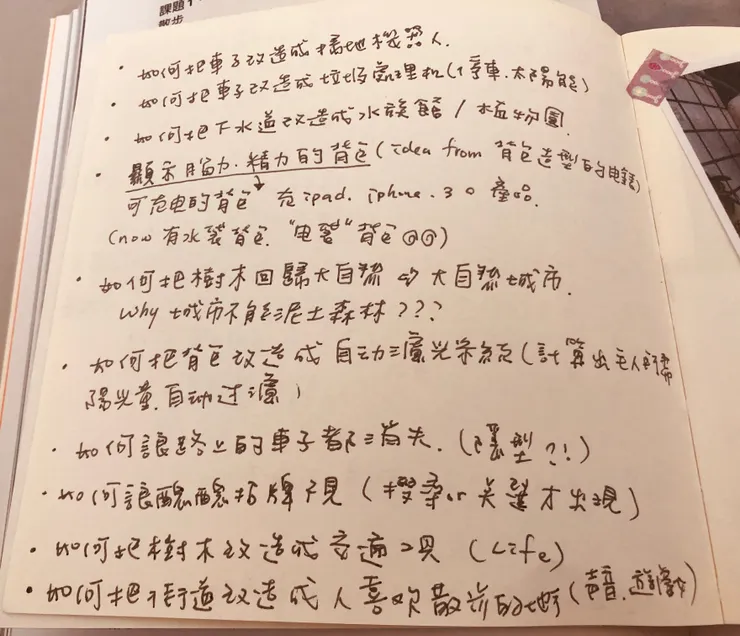 課題1
散步
• 如何把車子改造成掃地機器人.
• 如何把車子改造成垃圾處理机(停車.太陽能)
• 如何把下水道改造成水族館 / 植物園.
• 顯示月台力.精力的背包(idea from 背包造型的电錶)
可充电的背包 充ipad. iphone. 3C 產品.
(now 有水袋背包. "电袋"背包@@)
• 如何把樹木回歸大自然 大自然城市.
Why 城市不能泥土森林???
• 如何把背包改造成 自动濾光系統(計算出主人所需
陽光量.自动过濾)
• 如何讓路上的車子都消失.(隱型?!)
• 如何讓醜醜招牌不見 (搜尋or 关鍵才出現)
• 如何把樹木改造成交通工具 (Life)
• 如何把街道改造成人喜欢散步的地方(声音.遊戲)